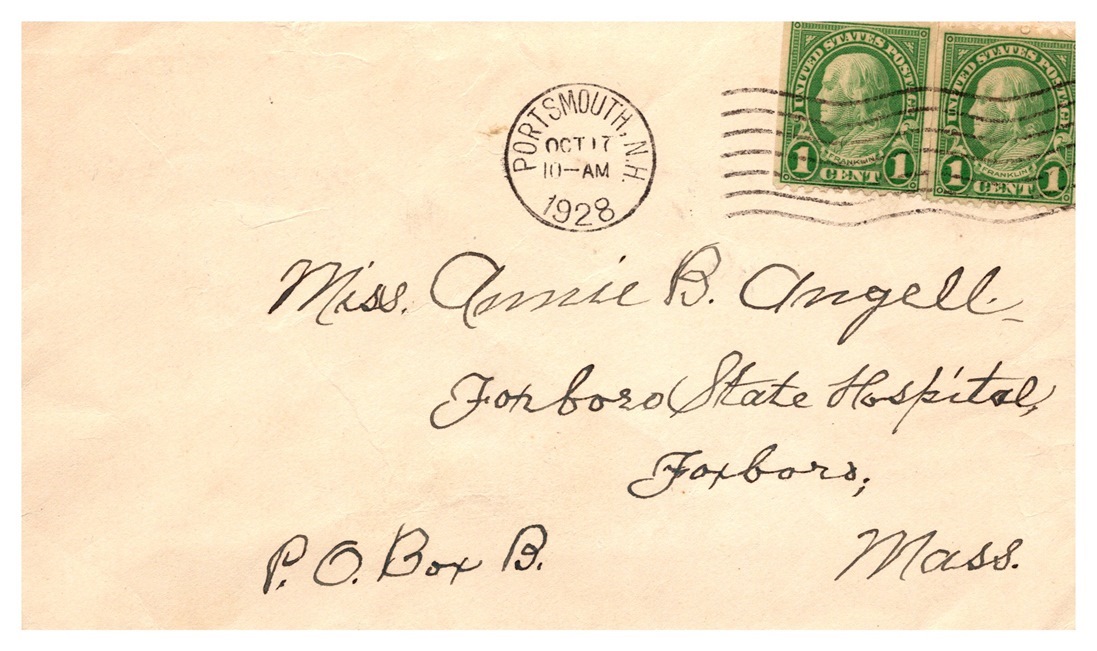 UNITED STATES POSTAGE
FRANKLIN
1 CENT 1
UNITED STATES POSTAGE
FRANKLIN
1 CENT 1
PORTSMOUTH, N.H.
OCT 17
10-AM
1928
Miss. Annie B. Angell.
Foxboro State Hospital,
Foxboro,
P.O. Box B.
Mass.